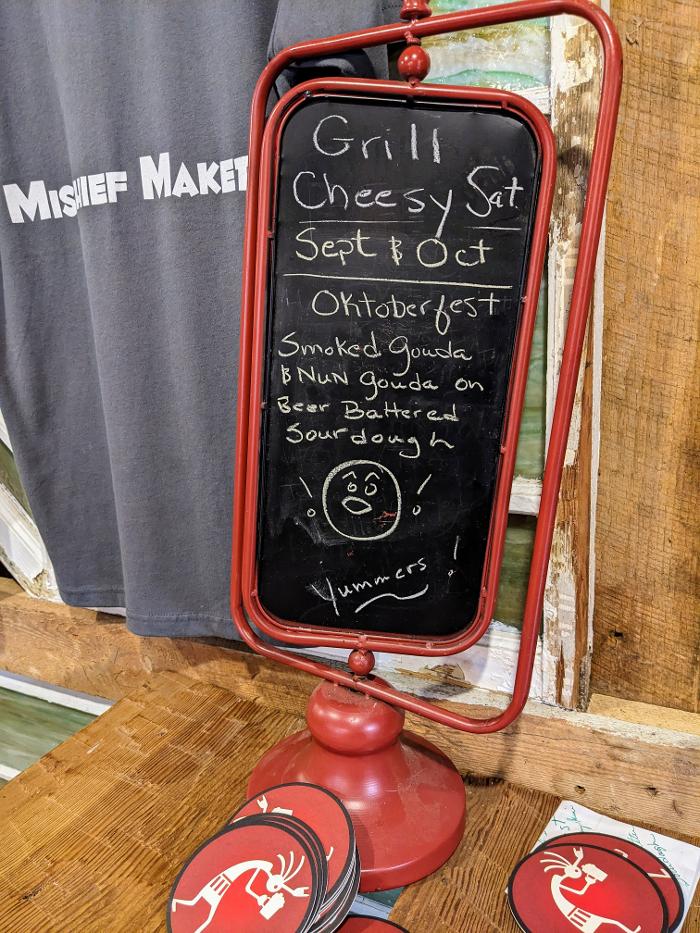 MISCHIEF MAKER
Grill
Cheesy Sat
Sept & Oct
Oktoberfest
Smoked Gouda
& NuN Gouda on
Beer Battered
Sourdough
! !
Yummers !